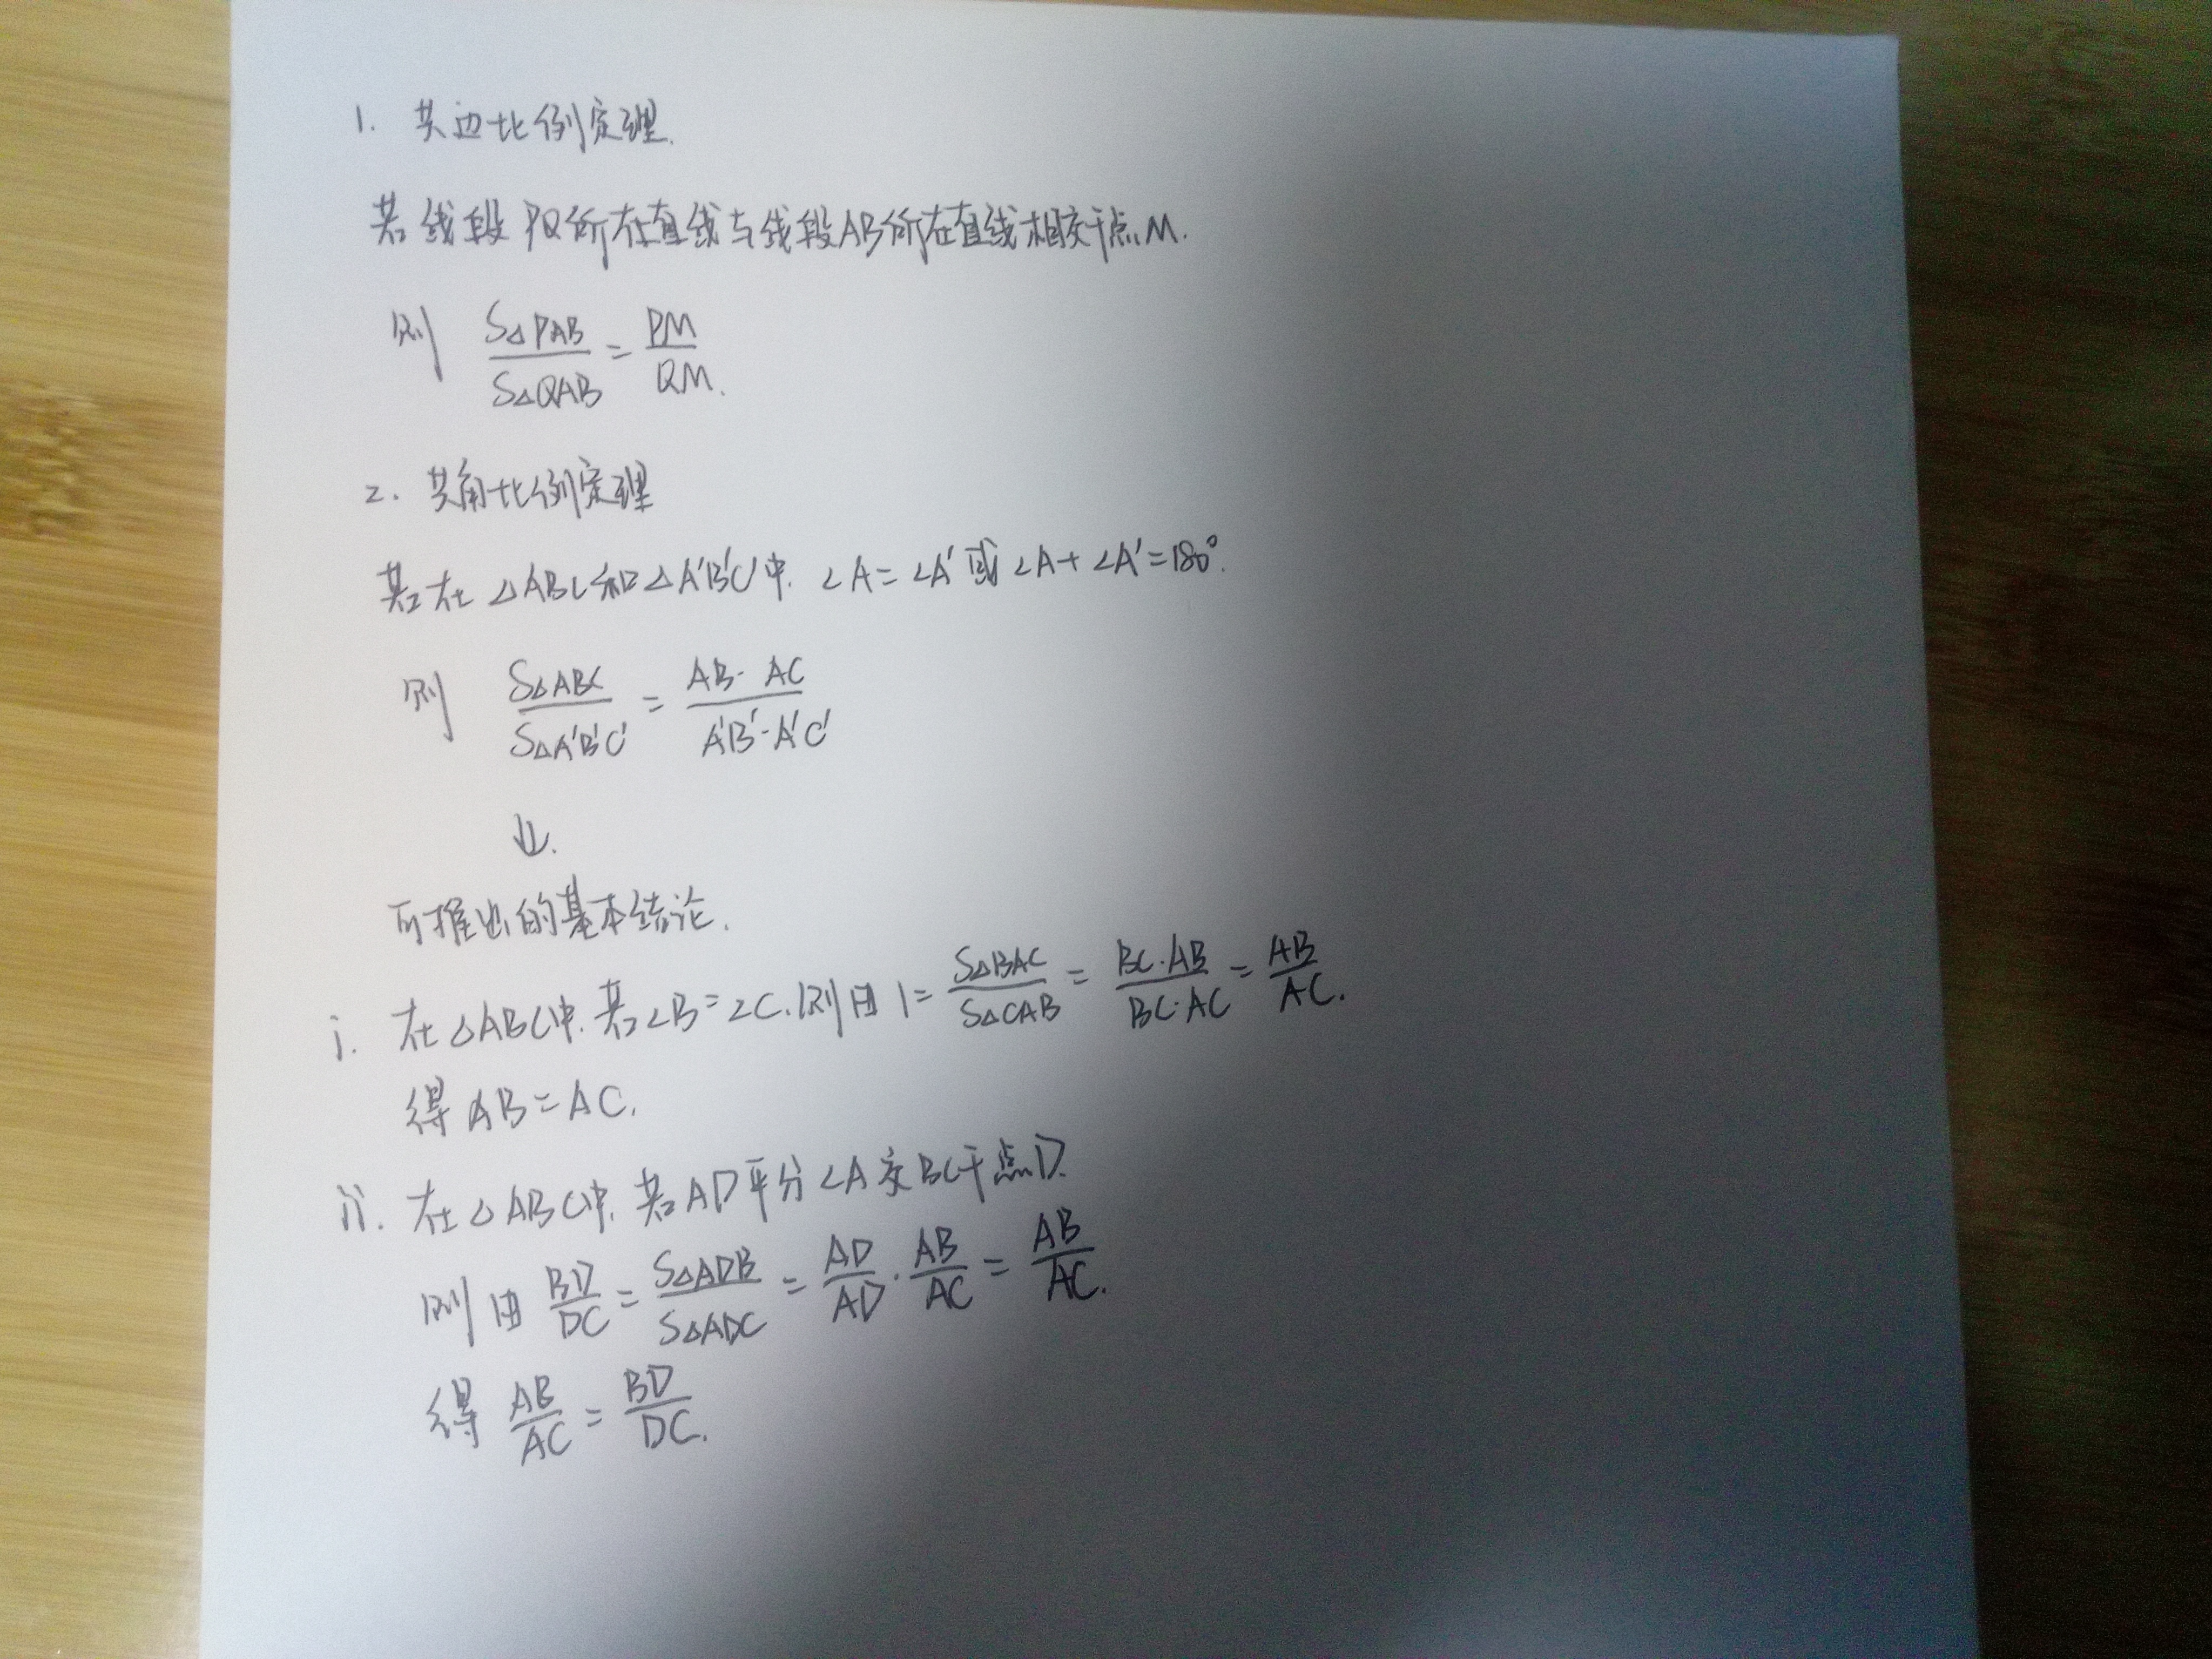 1. 共边比例定理.
若线段PQ所在直线与线段AB所在直线相交于点M.
则 S△PAB/S△QAB = PM/QM.
2. 共角比例定理
若在△ABC和△A'B'C'中. ∠A=∠A'或∠A+∠A'=180°.
则 S△ABC/S△A'B'C' = AB·AC/A'B'·A'C'
⇓.
可推出的基本结论.
i. 在△ABC中.若∠B=∠C.则由1=S△BAC/S△CAB=BC·AB/BC·AC=AB/AC.
得AB=AC.
ii. 在△ABC中,若AD平分∠A交BC于点D.
则由BD/DC=S△ADB/S△ADC=AD/AD·AB/AC=AB/AC.
得AB/AC=BD/DC.